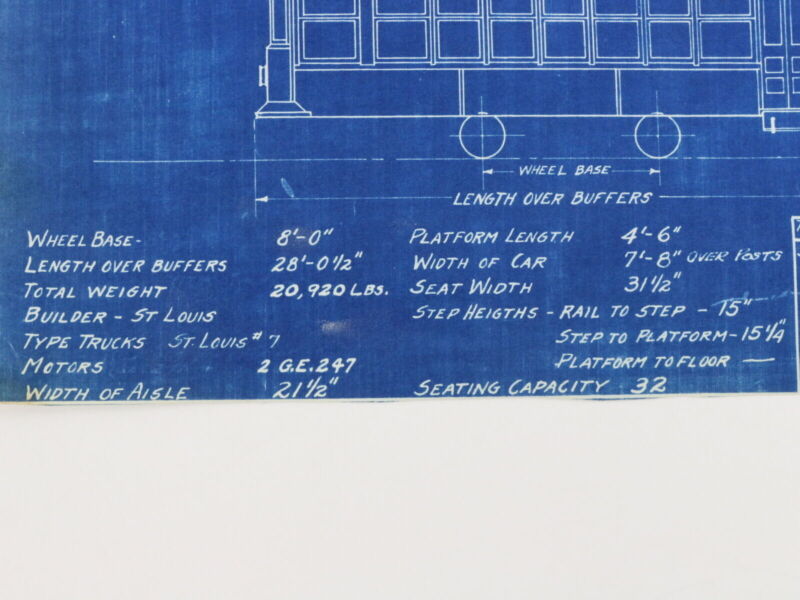 WHEEL BASE
LENGTH OVER BUFFERS
WHEEL BASE- 8'-0"
LENGTH OVER BUFFERS 28'-0 1/2"
TOTAL WEIGHT 20,920 LBS.
BUILDER - ST LOUIS
TYPE TRUCKS ST. LOUIS # 7
MOTORS 2 G.E. 247
WIDTH OF AISLE 21 1/2"
PLATFORM LENGTH 4'-6"
WIDTH OF CAR 7'-8" OVER POSTS
SEAT WIDTH 31 1/2"
STEP HEIGTHS - RAIL TO STEP - 15"
STEP TO PLATFORM - 15 1/4
PLATFORM TO FLOOR —
SEATING CAPACITY 32